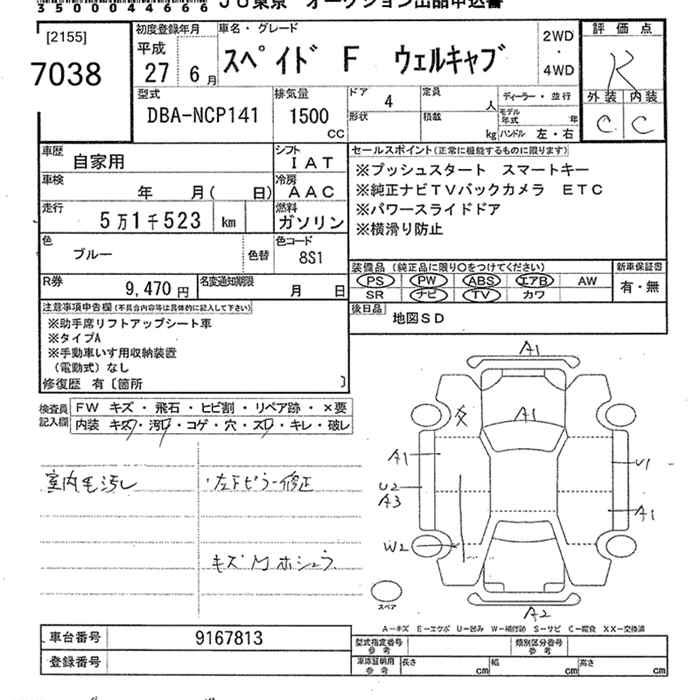 3500044666
JU東京 オークション出品申込書
[2155]
7038
初度登録年月
平成
27 6月
車名・グレード
スペイド F ウェルキャブ
2WD
・
4WD
評価点
R
外装 内装
C C
型式
DBA-NCP141
排気量
1500
CC
ドア
4
形状
定員
人
積載
kg
ディーラー・並行
モデル年式 年
ハンドル 左・右
車歴
自家用
シフト
IAT
車検
年 月( 日)
冷房
AAC
走行
5万1千523 km
燃料
ガソリン
色
ブルー
色替
色コード
8S1
R券
9,470円
名変通知期限
月 日
セールスポイント(正常に機能するものに限ります)
※プッシュスタート スマートキー
※純正ナビTVバックカメラ ETC
※パワースライドドア
※横滑り防止
装備品(純正品に限り○をつけてください)
PS PW ABS エアB AW
SR ナビ TV カワ
新車保証書
有・無
後日品
地図SD
注意事項申告欄(不具合内容等は具体的に記入して下さい)
※助手席リフトアップシート車
※タイプA
※手動車いす用収納装置
(電動式)なし
修復歴 有〔箇所 〕
検査員
記入欄
FW キズ・飛石・ヒビ割・リペア跡・×要
内装 キズ・汚れ・コゲ・穴・スレ・キレ・破レ
室内毛汚し
・左下ピラー修正
キズMホシュウ
A1
A1
A1
U2
A3
W2
U1
A1
A2
スペア
A−キズ E−エクボ U−凹み W−補修跡 S−サビ C−腐食 XX−交換済
車台番号
9167813
登録番号
型式指定番号
参考
類別区分番号
参考
車庫証明用
参考
長さ cm
幅 cm
高さ cm